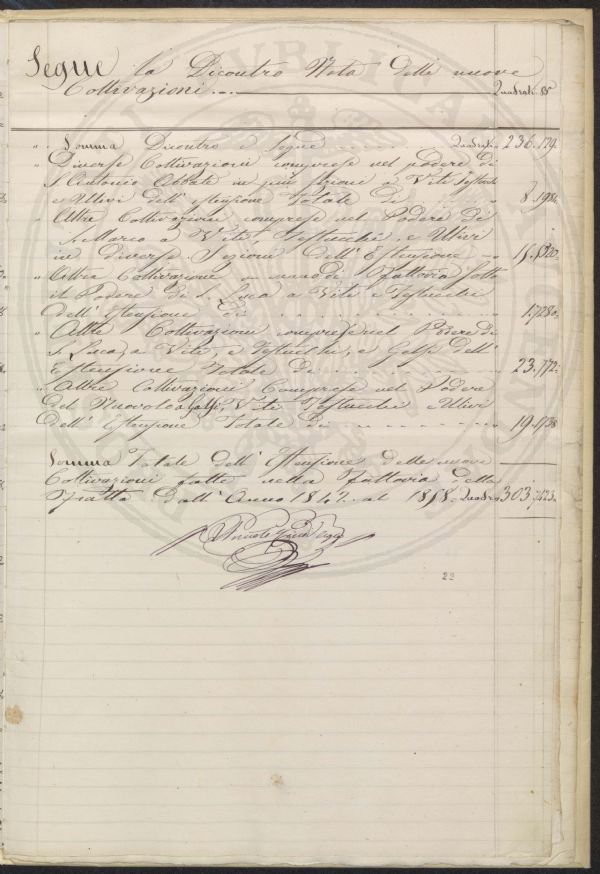 Segue la Dicontro Nota delle nuove
Coltivazioni Quadrati
Somma Dicontro e Segue Quadrati 236.
Diverse Coltivazioni comprese nel podere di
S. Antonio Abbate in più sezioni a Viti
e Ulivi dell'estensione totale di 8.
Altre Coltivazioni comprese nel Podere di
S. Marco a Viti, Testucchi, e Ulivi
in diverse Sezioni dell'Estensione
Altra Coltivazione sotto
il Podere di S. Luca a Viti e Testucchi
dell'estensione di
Altre Coltivazioni comprese nel Podere di
S. Luca, a Viti, e Testucchi, e Gelsi dell'
Estensione Totale di 23.772.
Altre Coltivazioni Comprese nel Podere
del Nuovole a Gelsi, Viti Testucchi e Ulivi
dell'Estensione Totale di 19.
Somma Totale dell'Estensione delle nuove
Coltivazioni fatte nella Fattoria della
Fratta dall'Anno 1842. al 1858. Quadrati 303.
22